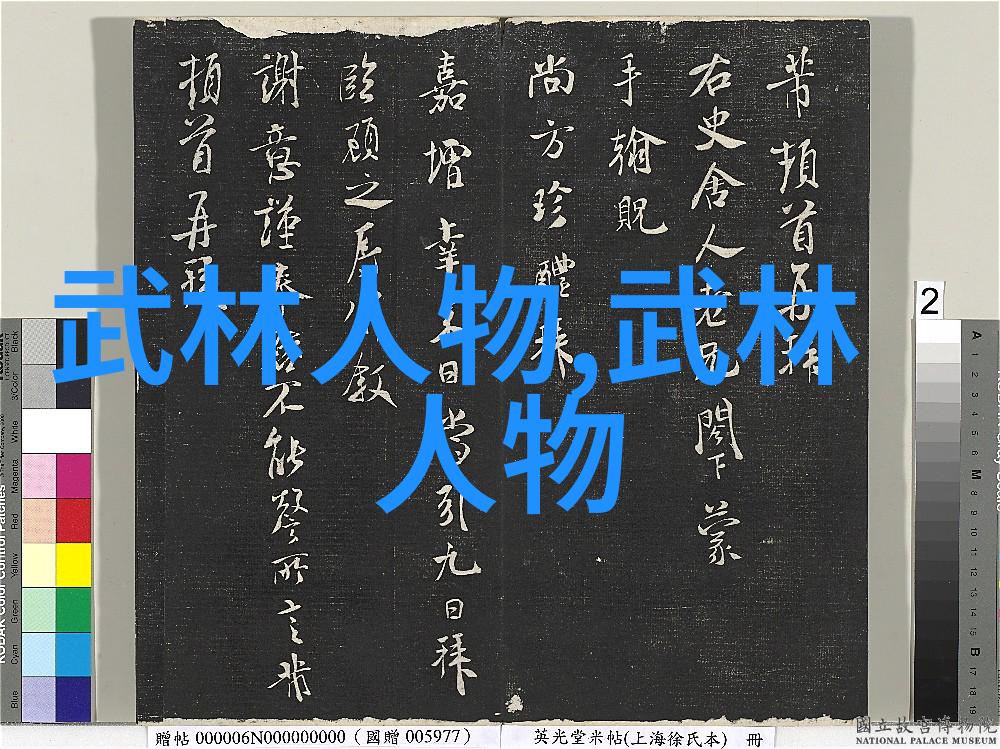 武林人物,武林
人物
芾頓首再拜
右史舍人老兄閣下蒙
手翰貺
尚方珍醴
嘉增幸 日當 九日拜
臨顧之 教
謝意謹 不能 所言芾
頓首再拜
2
Black
3/Color
White
Magenta
Red
Yellow
Green
Cyan
Blue
A 1 2 3 4 5 6 M 8 9 10 11 12 13 14 15 B 17 18 19
贈帖 000006N000000000 (國贈 005977)
英光堂米帖(上海徐氏本) 冊
國立故宮博物院
NATIONAL PALACE MUSEUM